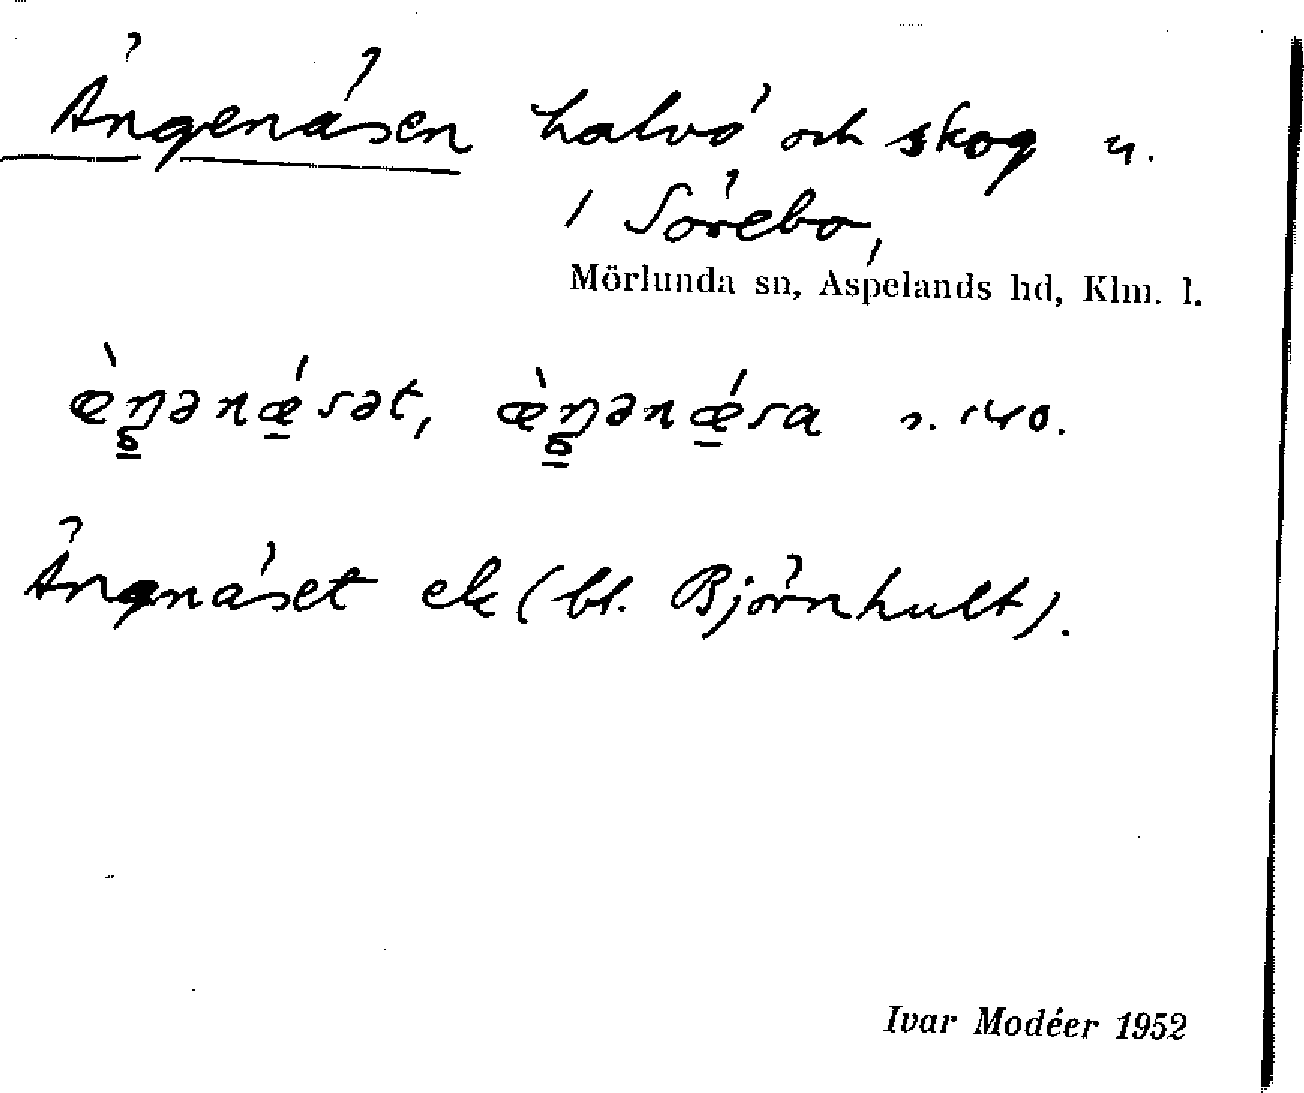 Ängenäsen halvö och skog n.
i Sörebo,
Mörlunda sn, Aspelands hd, Klm. l.
æ̀ŋənǽsət, æ̀ŋənǽsa s. 140.
Ängnäset ek (bl. Björnhult).
Ivar Modéer 1952